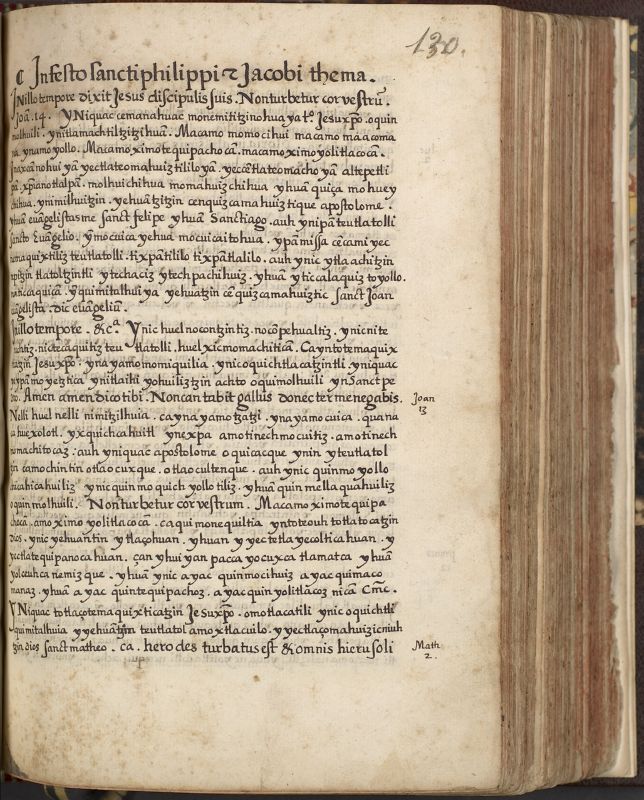 130.
¶ Infesto sanctiphilippi ⁊ Jacobi thema.
INillo tempore dixit Jesus discipulis suis. Nonturbetur cor vestrũ.
Joã. 14. YNiquac cemanahuac monemititzinohua ya tº. Jesuxpõ. oquin
molhuili. ynitlamachtiltzitzihuã. Macamo momocihui macamo maacoma
na ynamoyollo. Macamoximotequipachocã. macamoximoyolitlacocã.
ynaxcãnohui yã yectlateomahuiztililo yã. yecẽtlateomacho yã altepetli
pã. xp̃ianotlalpã. molhuichihua momahuizchihua yhuã quiça mohuey
chihua. ynimilhuitzin. yehuãtzitzin cenquizcamahuiztique apostolome.
yhuã evãgelistasme sanct felipe yhuã Sanctiago. auh ynipã teutlatolli
sancto Evãgelio. ỹmocuica yehua mocuicaitohua. ypã missa cẽcami yec
nemaquixtiliz teutlatolli. tixpãtililo tixpãtlalilo. auh ynic ytlaachitzin
ypitzin tlatoltzintli ytechaciz ytechpachihuiz. yhuã yticcalaquiz toyollo.
maticcaquicã. ỹquimitalhui ya yehuatzin cẽquizcamahuiztic Sanct Joan
euãgelista. dic evãgeliũ.
Inillo tempore. &cª. Ynic huel nocontzintiz. nocõpehualtiz. ynicnite
machtiz. nictecaquitiz teutlatolli. huel xicmomachiticã. Caynto temaquix
ticatzin Jesuxpõ. yna yamo momiquilia. ynicoquichtlacatzintli. yniquac
Amen amen dico tibi. Noncantabit gallus donec ter menegabis.
Joan
13
Nelli huel nelli nimitzilhuia. cayna yamo tzatzi. yna yamo cuica. quana
ca huexolotl. yxquichcahuitl ynexpa amotinechmocuitiz. amotinech
momachitocaz: auh yniquac apostolome oquicacque ynin yteutlatol
tzin camochintin otlaocuxque. otlaocultenque. auh ynic quinmoyollo
chicahicahuiliz ynicquinmoquichyollotiliz. yhuã quinmellaquahuiliz
oquinmolhuili. Nonturbetur cor vestrum. Macamo ximotequipa
chocã. amo ximoyolitlacocã. ca quimonequiltia yntoteouh totlatocatzin
Dios. ynic yehuantin ytlaçohuan. yhuan yyectetlayecolticahuan. y
yectlatequipanocahuan. çan yhuiyan pacca yocuxca tlamatca yhuã
yolceuhcanemizque. yhuã ynic ayac quinmocihuiz ayac quimaco
manaz. yhuã ayac quintequipachoz. ayac quinyolitlacoz nicã Cm̃c.
YNiquac totlaçotemaquixticatzin Jesuxpõ. omotlacatili ynic oquichtli
quimitalhuia yyehuãtzin teutlatolamoxtlacuilo. yyectlaçomahuizicniuh
tzin dios sanct matheo. ca. herodes turbatus est & omnis hierusoli
Math
2.